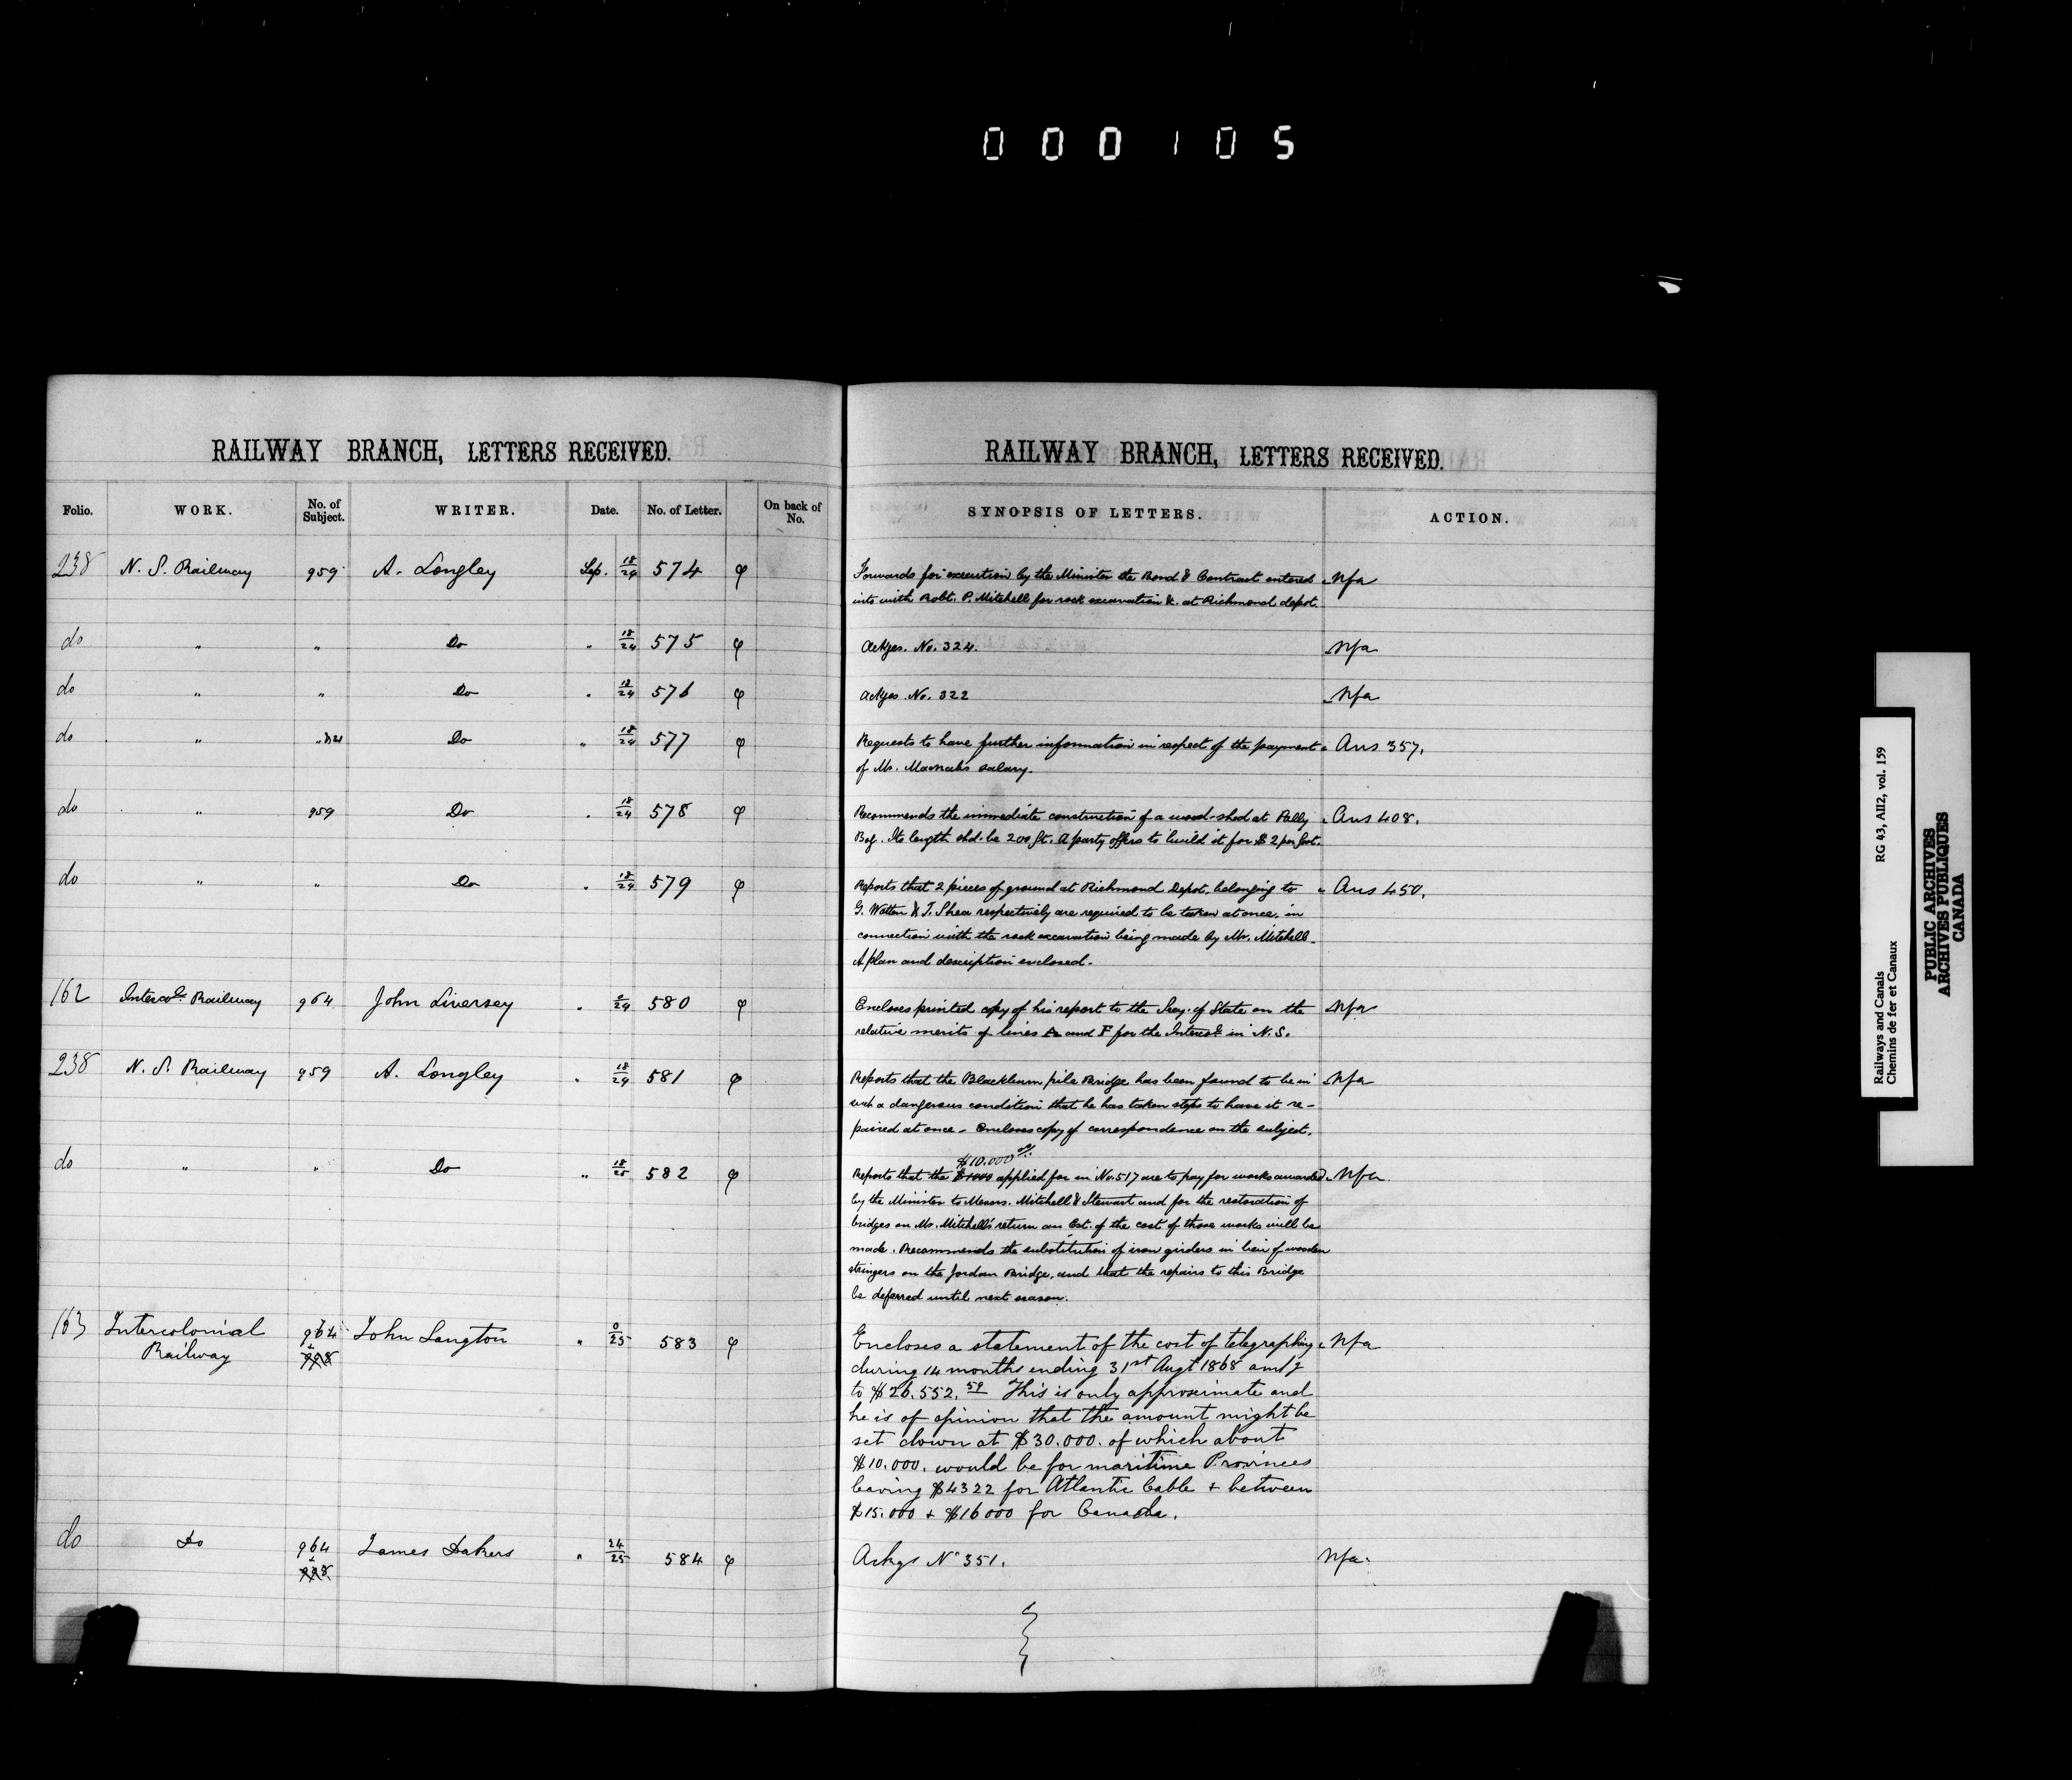 000105
RAILWAY BRANCH, LETTERS RECEIVED.
Folio. WORK. No. of Subject. WRITER. Date. No. of Letter. On back of No.
238 N. S. Railway 959 A. Longley Sep. 18/24 574 φ
do " " Do " 18/24 575 φ
do " " Do " 18/24 576 φ
do " " Do " 18/24 577 φ
do " 959 Do " 18/24 578 φ
do " " Do " 18/24 579 φ
162 Intercol. Railway 964 John Livesey " 0/24 580 φ
238 N. S. Railway 959 A. Longley " 18/24 581 φ
do " " Do " 18/25 582 φ
163 Intercolonial Railway 964 + 998 John Langton " 0/25 583 φ
do Do 964 + 998 James Dakers " 24/25 584 φ
RAILWAY BRANCH, LETTERS RECEIVED.
SYNOPSIS OF LETTERS. ACTION.
Forwards for execution by the Minister the Bond & Contract entered Nfa
into with Robt. P. Mitchell for rock excavation &. at Richmond depot.
Ackges. No. 324. Nfa
Ackges. No. 322 Nfa
Requests to have further information in respect of the payment Ans 357.
of Mr. Macnabs salary.
Recommends the immediate construction of a wood-shed at Ans 408.
Its length shd. be 200 ft. A party offers to build it for $2 per foot.
Reports that 2 pieces of ground at Richmond Depot, belonging to Ans 450.
G. & T. Shea respectively are required to be taken at once, in
connection with the rock excavation being made by Mr. Mitchell.
A plan and description enclosed.
Encloses printed copy of his report to the Secy. of State on the Nfa
relative merits of lines A and F for the Intercol. in N.S.
Reports that the Blackburn pile Bridge has been found to be in Nfa
such a dangerous condition that he has taken steps to have it re-
paired at once - Encloses copy of correspondence on the subject.
$10.000
Reports that the $1000 applied for in No. 517 are to pay for works awarded Nfa
by the Minister to Messrs. Mitchell & Stewart and for the restoration of
bridges on Mr. Mitchell's return an Est. of the cost of those works will be
made. Recommends the substitution of iron girders in lieu of wooden
stringers on the Jordan Bridge, and that the repairs to this Bridge
be deferred until next season.
Encloses a statement of the cost of telegraphing Nfa
during 14 months ending 31st Augt 1868 amtg
to $26.552.59 This is only approximate and
he is of opinion that the amount might be
set down at $30.000. of which about
$10.000. would be for maritime Provinces
leaving $4322 for Atlantic Cable + between
$15.000 + $16000 for Canada.
Ackgs No 351. Nfa
Railways and Canals RG 43, AII2, vol. 159
Chemins de fer et Canaux
PUBLIC ARCHIVES
ARCHIVES PUBLIQUES
CANADA